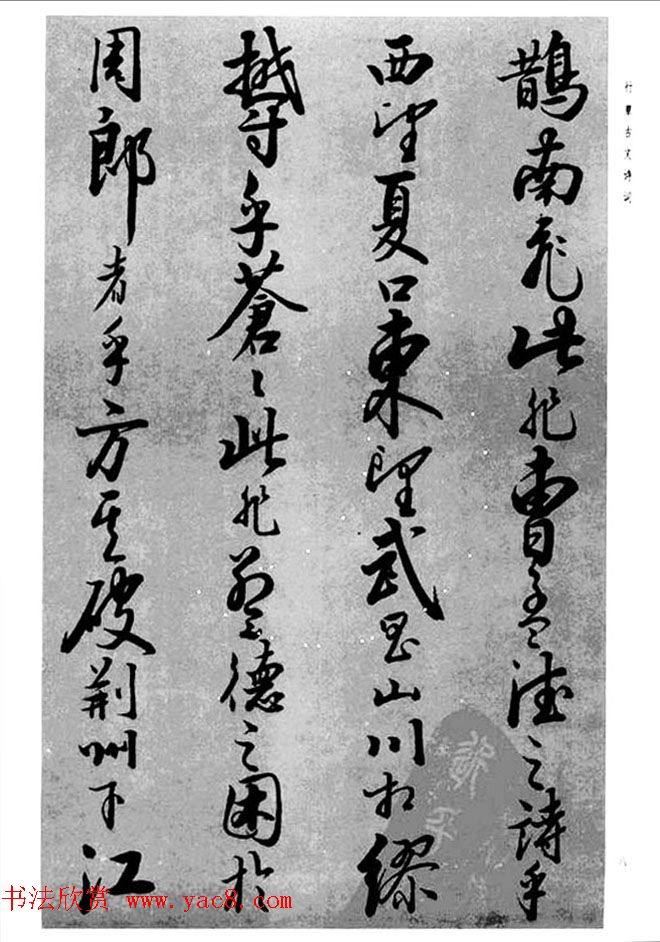 行草古文诗词
鵲南飛此非曹孟德之詩乎
西望夏口東望武昌山川相繆
鬱乎蒼〻此非孟德之困於
周郎者乎方其破荆州下江
书法欣赏 www.yac8.com